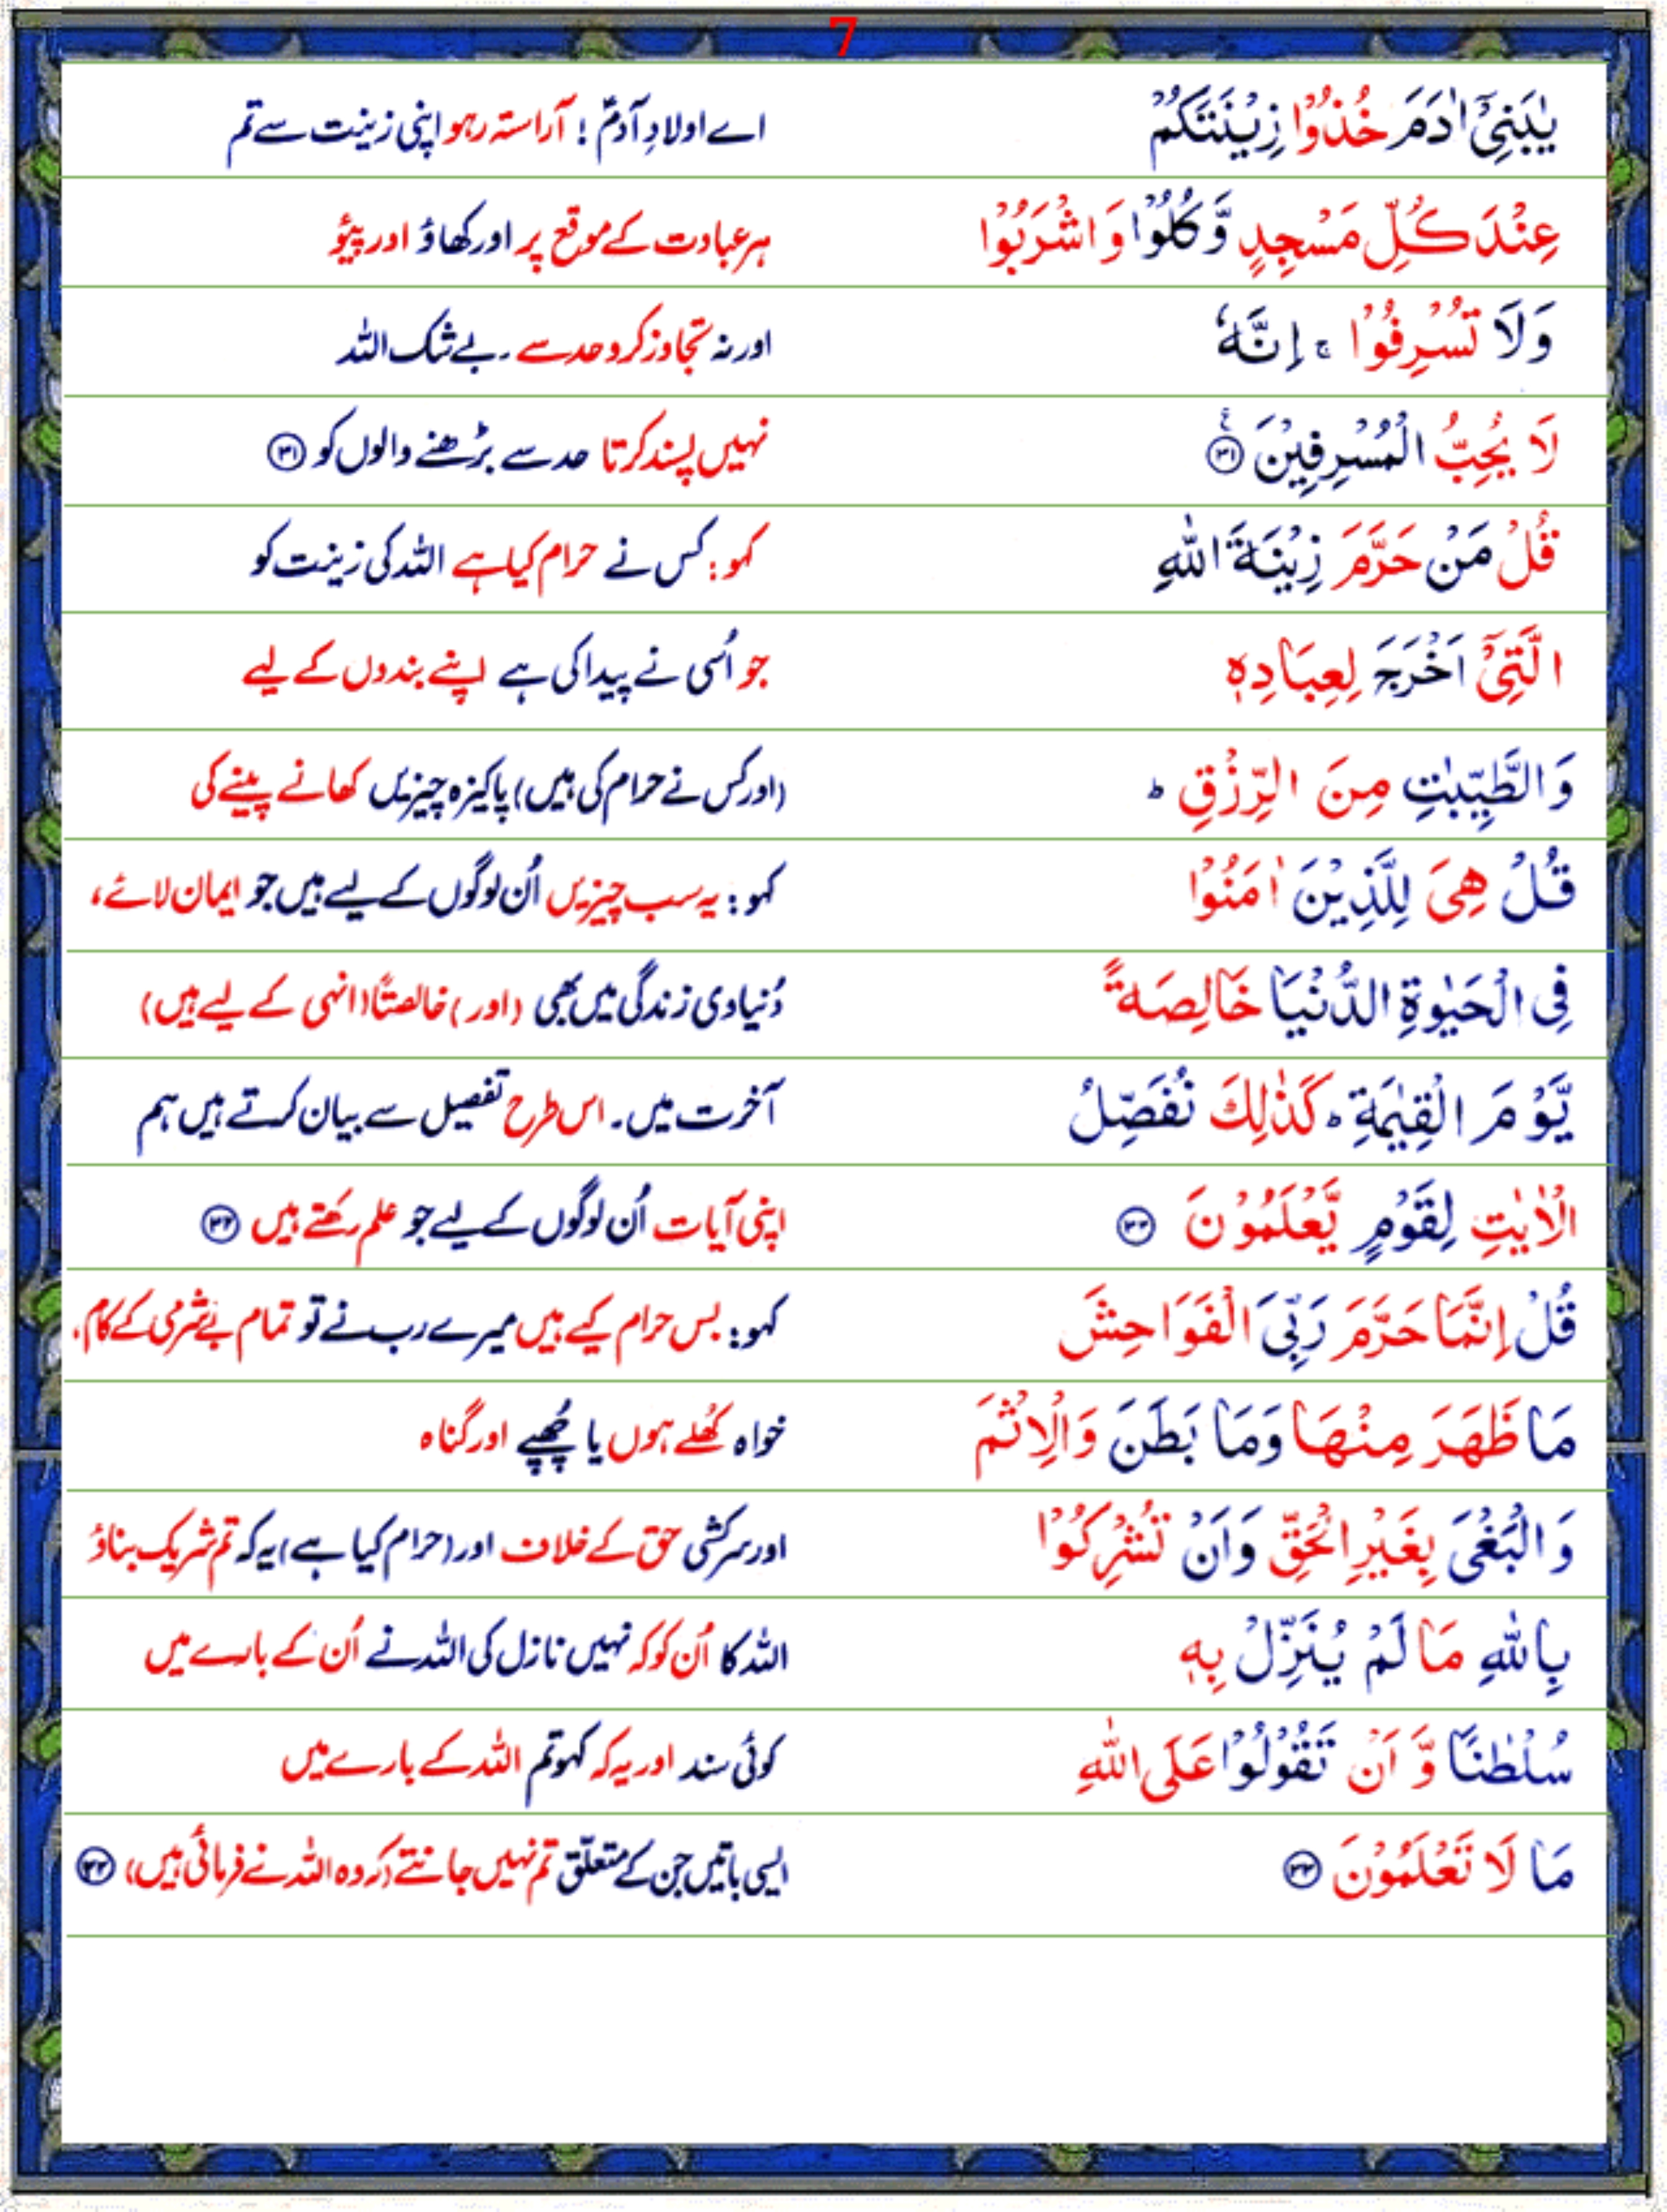 7
يٰبَنِيْٓ اٰدَمَ خُذُوْا زِيْنَتَكُمْ اے اولادِ آدمؑ ! آراستہ رہو اپنی زینت سے تم
عِنْدَ كُلِّ مَسْجِدٍ وَّكُلُوْا وَاشْرَبُوْا ہر عبادت کے موقع پر اور کھاؤ اور پیئو
وَلَا تُسْرِفُوْا ۚ اِنَّهٗ اور نہ تجاوز کرو حد سے ۔ بے شک اللہ
لَا يُحِبُّ الْمُسْرِفِيْنَ ۧ ﴿۳۱﴾ نہیں پسند کرتا حد سے بڑھنے والوں کو ﴿۳۱﴾
قُلْ مَنْ حَرَّمَ زِيْنَةَ اللّٰهِ کہو : کس نے حرام کیا ہے اللہ کی زینت کو
الَّتِيْٓ اَخْرَجَ لِعِبَادِهٖ جو اُسی نے پیدا کی ہے اپنے بندوں کے لیے
وَالطَّيِّبٰتِ مِنَ الرِّزْقِ ؕ (اور کس نے حرام کی ہیں) پاکیزہ چیزیں کھانے پینے کی
قُلْ هِىَ لِلَّذِيْنَ اٰمَنُوْا کہو : یہ سب چیزیں اُن لوگوں کے لیے ہیں جو ایمان لائے،
فِى الْحَيٰوةِ الدُّنْيَا خَالِصَةً دُنیاوی زندگی میں بھی (اور) خالصتًا (انہی کے لیے ہیں)
يَّوْمَ الْقِيٰمَةِ ؕ كَذٰلِكَ نُفَصِّلُ آخرت میں۔ اس طرح تفصیل سے بیان کرتے ہیں ہم
الْاٰيٰتِ لِقَوْمٍ يَّعْلَمُوْنَ ﴿۳۲﴾ اپنی آیات اُن لوگوں کے لیے جو علم رکھتے ہیں ﴿۳۲﴾
قُلْ اِنَّمَا حَرَّمَ رَبِّىَ الْفَوَاحِشَ کہو : بس حرام کیے ہیں میرے رب نے تو تمام بے شرمی کے کام،
مَا ظَهَرَ مِنْهَا وَمَا بَطَنَ وَالْاِثْمَ خواہ کُھلے ہوں یا چُھپے اور گناہ
وَالْبَغْىَ بِغَيْرِ الْحَقِّ وَاَنْ تُشْرِكُوْا اور سرکشی حق کے خلاف اور (حرام کیا ہے) یہ کہ تم شریک بناؤ
بِاللّٰهِ مَا لَمْ يُنَزِّلْ بِهٖ اللہ کا اُن کو کہ نہیں نازل کی اللہ نے اُن کے بارے میں
سُلْطٰنًا وَّ اَنْ تَقُوْلُوْا عَلَى اللّٰهِ کوئی سند اور یہ کہ کہو تم اللہ کے بارے میں
مَا لَا تَعْلَمُوْنَ ﴿۳۳﴾ ایسی باتیں جن کے متعلّق تم نہیں جانتے (کہ وہ اللہ نے فرمائی ہیں) ﴿۳۳﴾